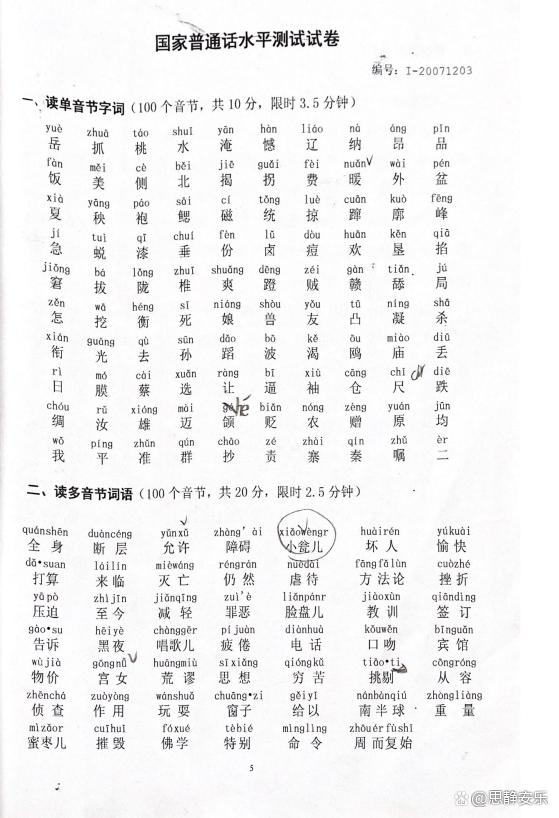 国家普通话水平测试试卷
编号: I-20071203
一、读单音节字词（100个音节，共10分，限时3.5分钟）
yuè zhuā táo shuǐ yān hàn liáo nà áng pǐn
岳 抓 桃 水 淹 憾 辽 纳 昂 品
fàn měi cè běi jiē guǎi fèi nuǎn wài pén
饭 美 侧 北 揭 拐 费 暖 外 盆
xià yāng páo sāi cí tǒng luè cuān kuò fēng
夏 秧 袍 鳃 磁 统 掠 蹿 廓 峰
jí tuì qī chuí fèn lǔ dòu huān kěn qiā
急 蜕 漆 垂 份 卤 痘 欢 垦 掐
jiǒng bá lǒng zhuī shuǎng dēng zéi gàn tiǎn jú
窘 拔 陇 椎 爽 蹬 贼 赣 舔 局
zěn wā héng sǐ niáng shòu yǒu tū níng shā
怎 挖 衡 死 娘 兽 友 凸 凝 杀
xián guāng qù sūn dǎo bō kě ōu miào diū
衔 光 去 孙 蹈 波 渴 鸥 庙 丢
rì mó cài xuǎn ràng bī xiù cāng chǐ diē
日 膜 蔡 选 让 逼 袖 仓 尺 跌
chóu rǔ xióng mài hé biǎn nóng zèng yuán jūn
绸 汝 雄 迈 颌 贬 农 赠 原 均
wǒ píng zhǔn qún chāo zé zhài qín zhǔ èr
我 平 准 群 抄 责 寨 秦 嘱 二
二、读多音节词语（100个音节，共20分，限时2.5分钟）
quánshēn duàncéng yǔnxǔ zhàng'ài xiǎowèngr huàirén yúkuài
全身 断层 允许 障碍 小瓮儿 坏人 愉快
dǎ•suan láilín mièwáng réngrán nüèdài fāngfǎlùn cuòzhé
打算 来临 灭亡 仍然 虐待 方法论 挫折
yāpò zhìjīn jiǎnqīng zuì'è liǎnpánr jiàoxùn qiāndìng
压迫 至今 减轻 罪恶 脸盘儿 教训 签订
gào•su hēiyè chànggēr píjuàn diànhuà kǒuwěn bīnguǎn
告诉 黑夜 唱歌儿 疲倦 电话 口吻 宾馆
wùjià gōngnǚ huāngmiù sīxiǎng qióngkǔ tiāo•ti cóngróng
物价 宫女 荒谬 思想 穷苦 挑剔 从容
zhēnchá zuòyòng wánshuǎ chuāng•zi gěiyǐ nánbànqiú zhòngliàng
侦查 作用 玩耍 窗子 给以 南半球 重量
mìzǎor cuīhuǐ fóxué tèbié mìnglìng zhōuérfùshǐ
蜜枣儿 摧毁 佛学 特别 命令 周而复始
5
思静安乐